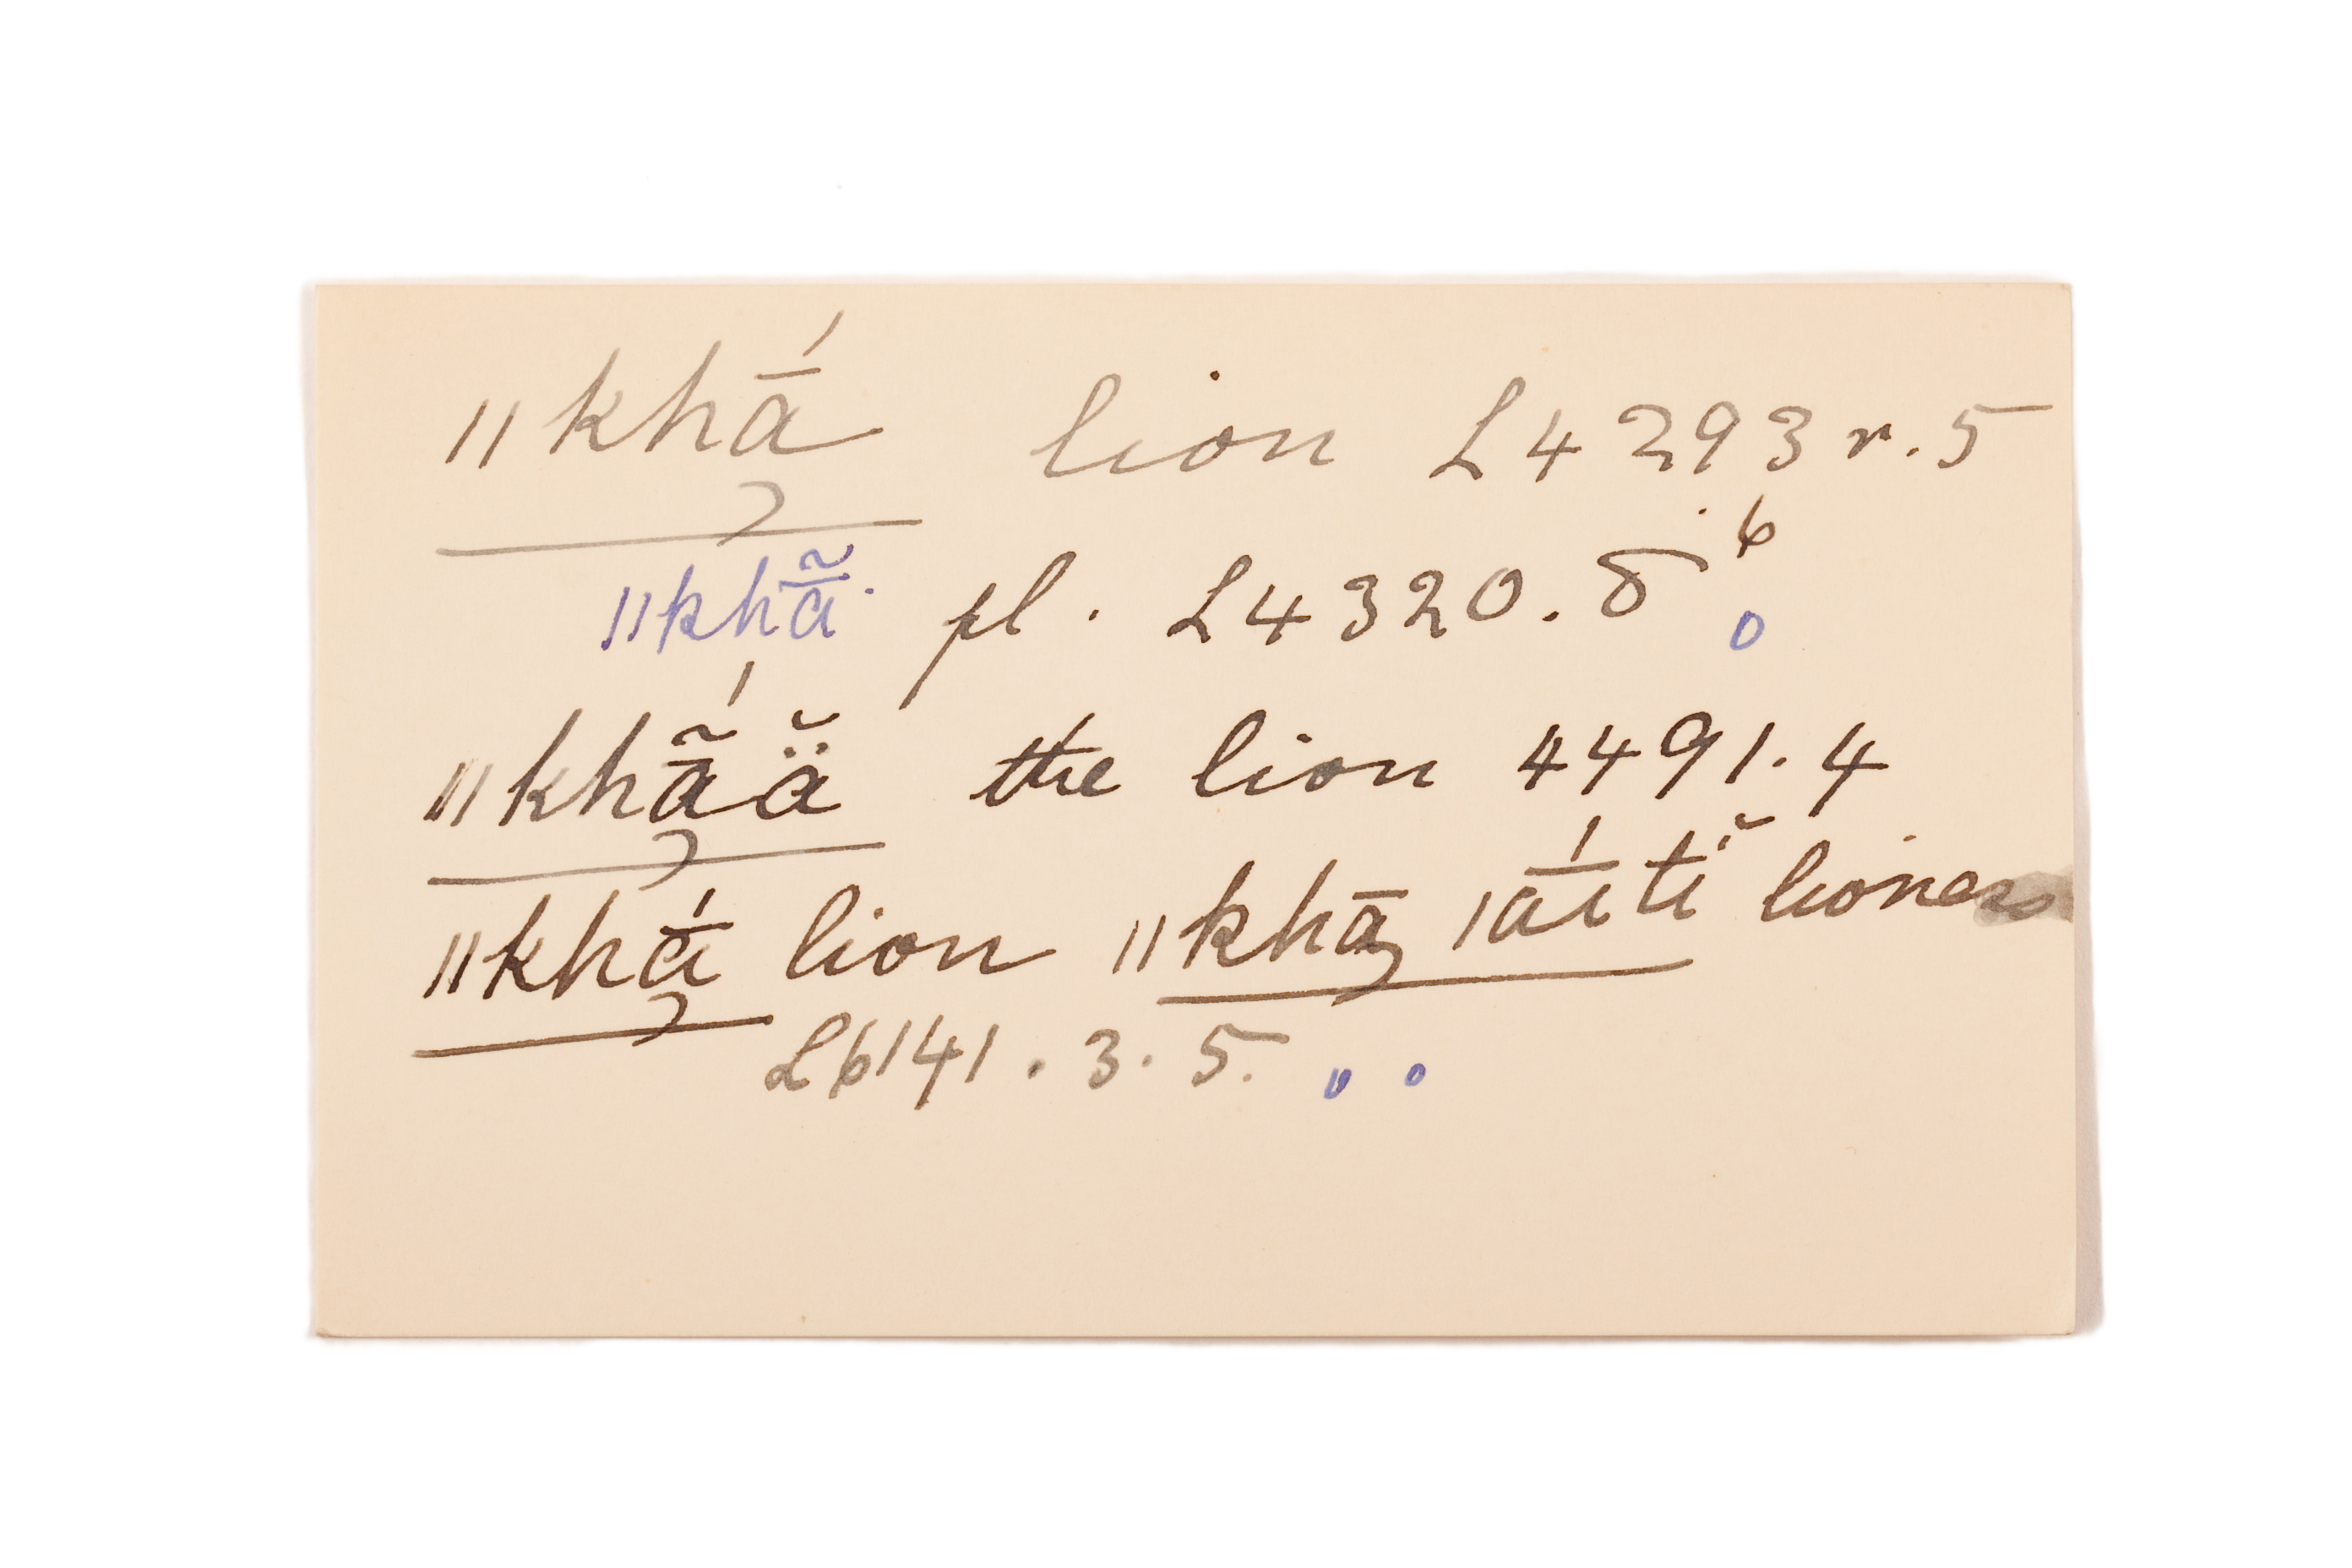 ǁkhą̄́ lion L4293r.5
ǁkhā̃. pl. L4320.8 6 o
ǁkhą̄̃́ ä̆ the lion 4491.4
ǁkhą̄́ lion ǁkhą̄ ǀā́ítĭ lioness
L6141.3.5. " o